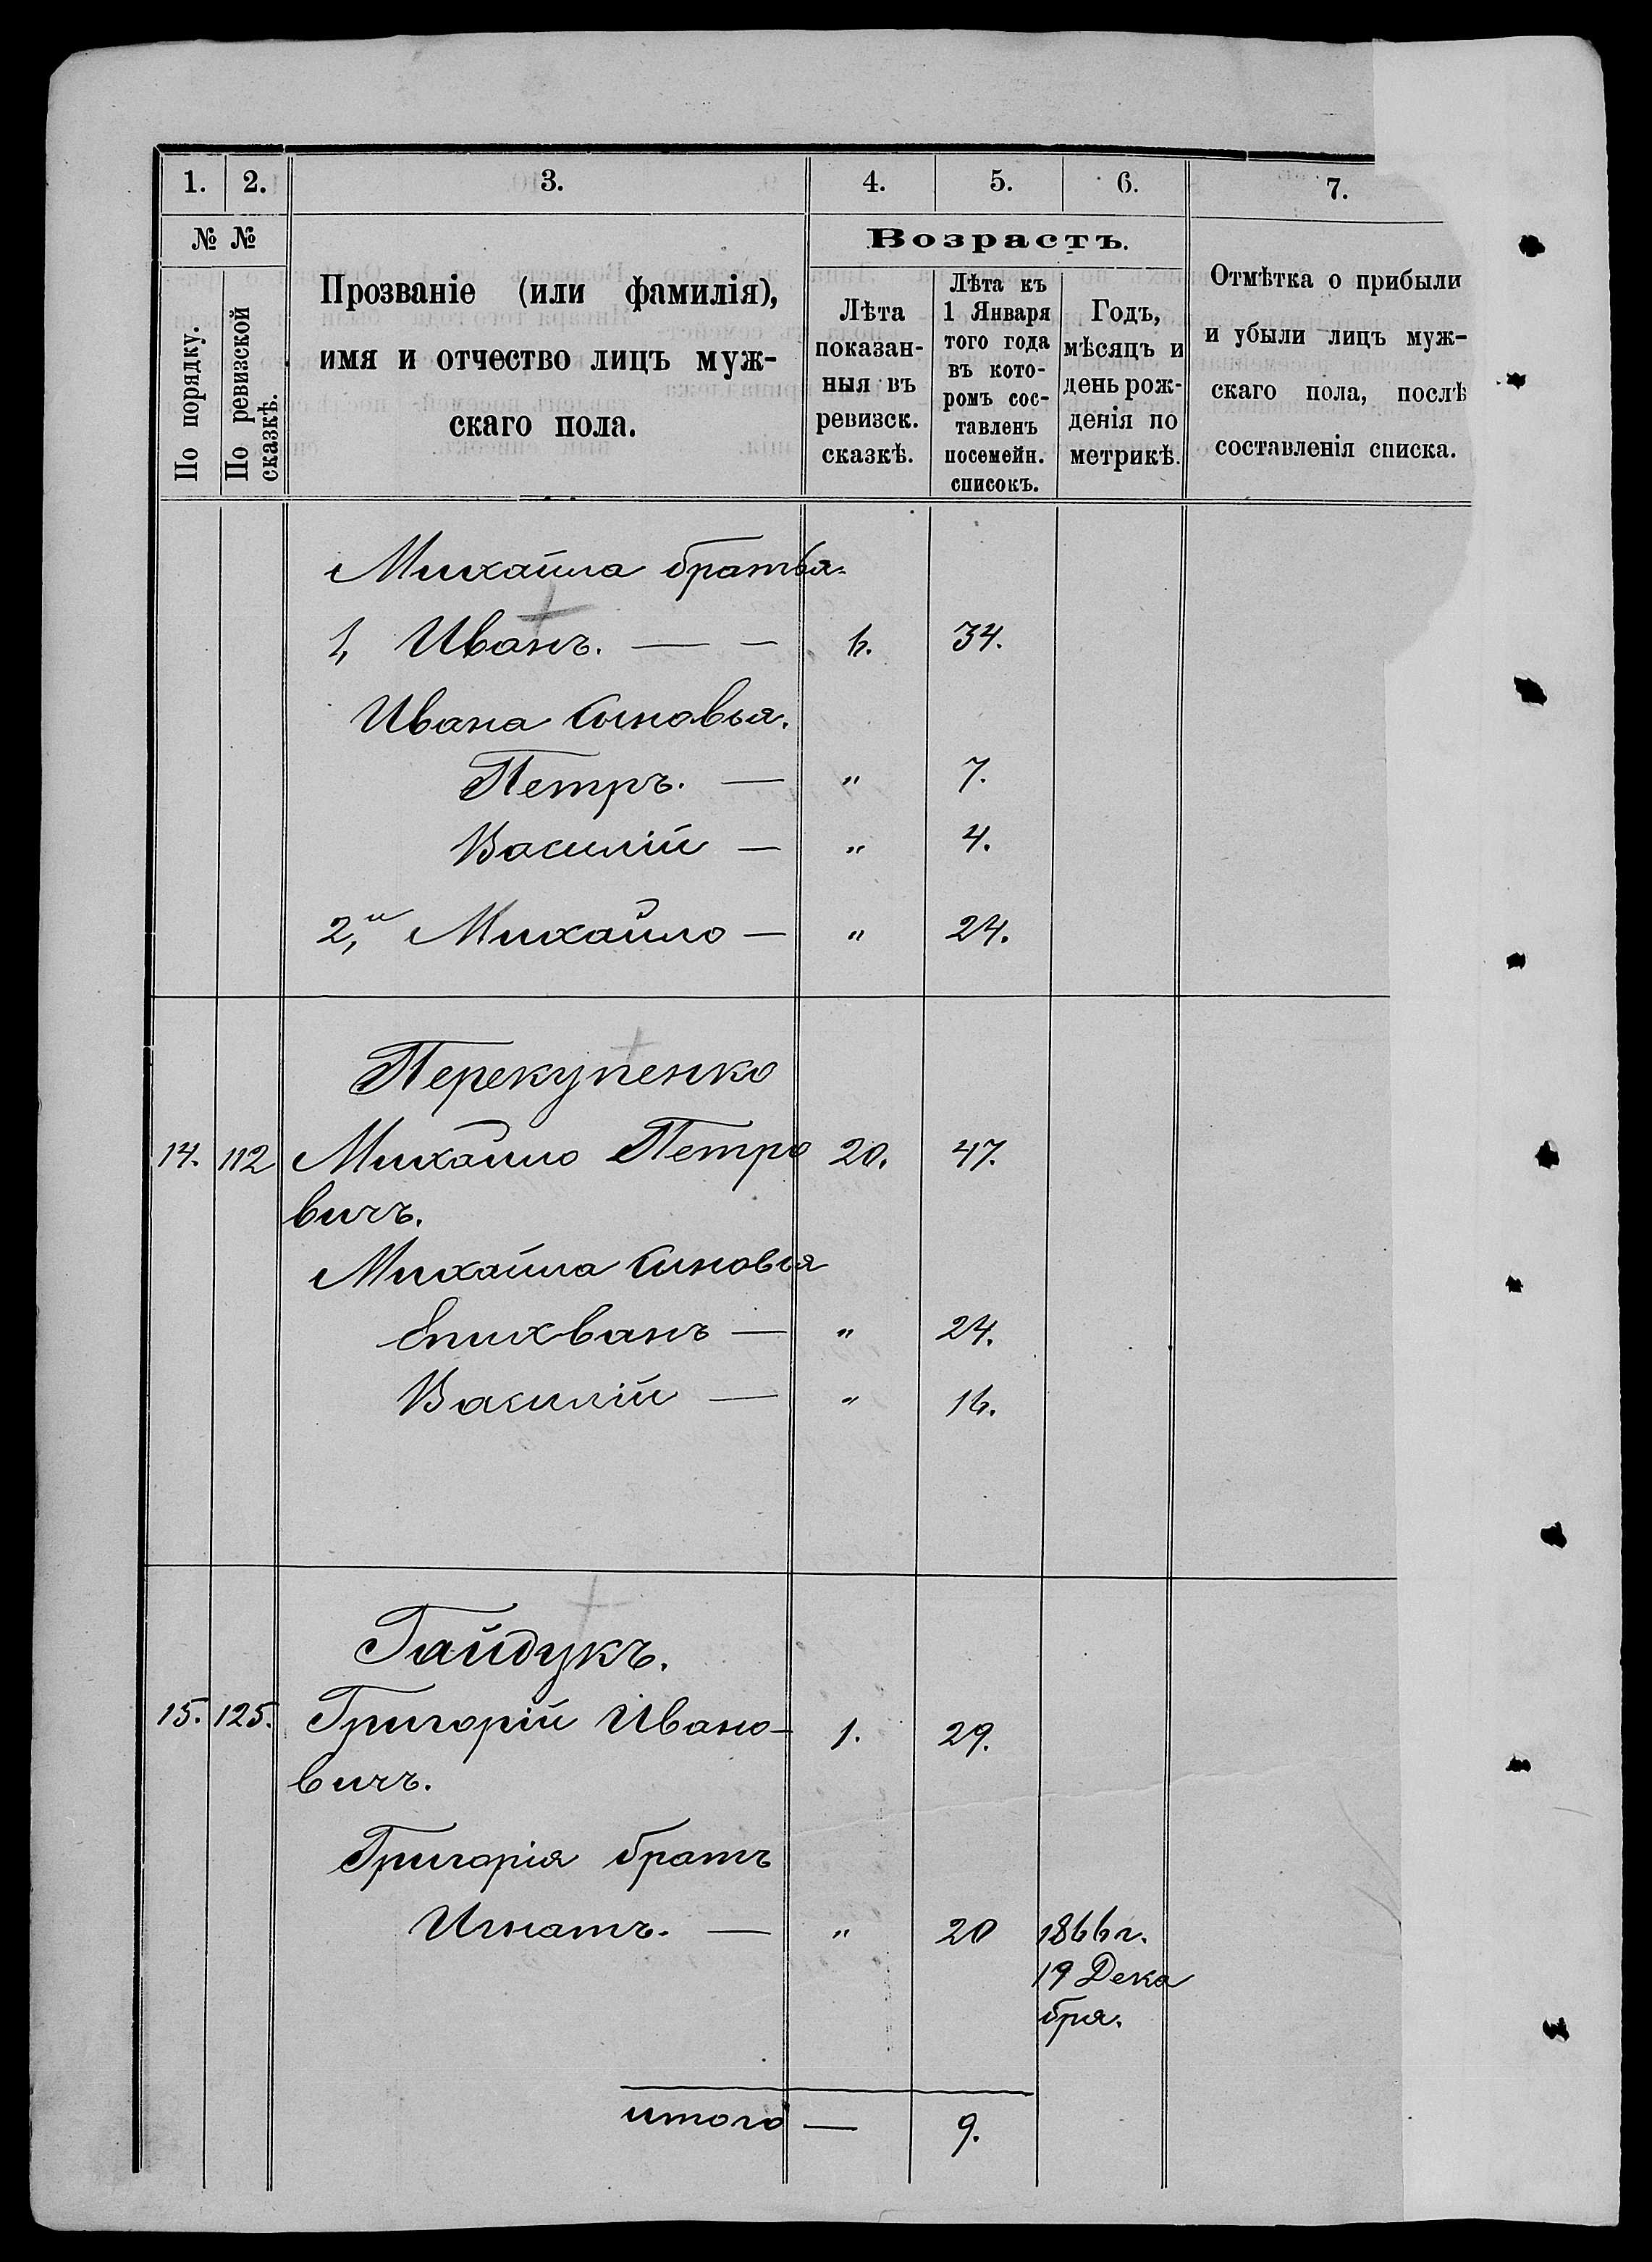 1. 2. 3. 4. 5. 6. 7.
№ №
По порядку.
По ревизской сказкѣ.
Прозваніе (или фамилія),
имя и отчество лицъ муж-
скаго пола.
Возрастъ.
Лѣта
показан-
ныя въ
ревизск.
сказкѣ.
Лѣта къ
1 Января
того года
въ кото-
ромъ сос-
тавленъ
посемейн.
списокъ.
Годъ,
мѣсяцъ и
день рож-
денія по
метрикѣ.
Отмѣтка о прибыли
и убыли лицъ муж-
скаго пола, послѣ
составленія списка.
Михайла братья.
1, Иванъ. — — 6. 34.
Ивана сыновья.
Петръ. — " 7.
Василій — " 4.
2,й Михайло — " 24.
Перекупенко
14. 112 Михайло Петро 20. 47.
вичъ.
Михайла сыновья
Епихванъ — " 24.
Василій — " 16.
Гайдукъ.
15. 125. Григорій Ивано- 1. 29.
вичъ.
Григорія братъ
Игнатъ. — " 20 1866 г.
19 Дека
бря.
итого — 9.